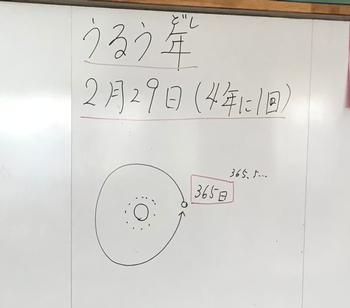 どし
うるう年
2月29日(4年に1回)
365日